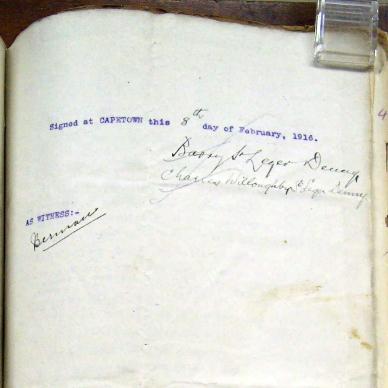 Signed at CAPETOWN this 8th day of February, 1916.
Barry St Leger Denny
Charles Willoughby St Leger Denny
AS WITNESS:-
Berman
4